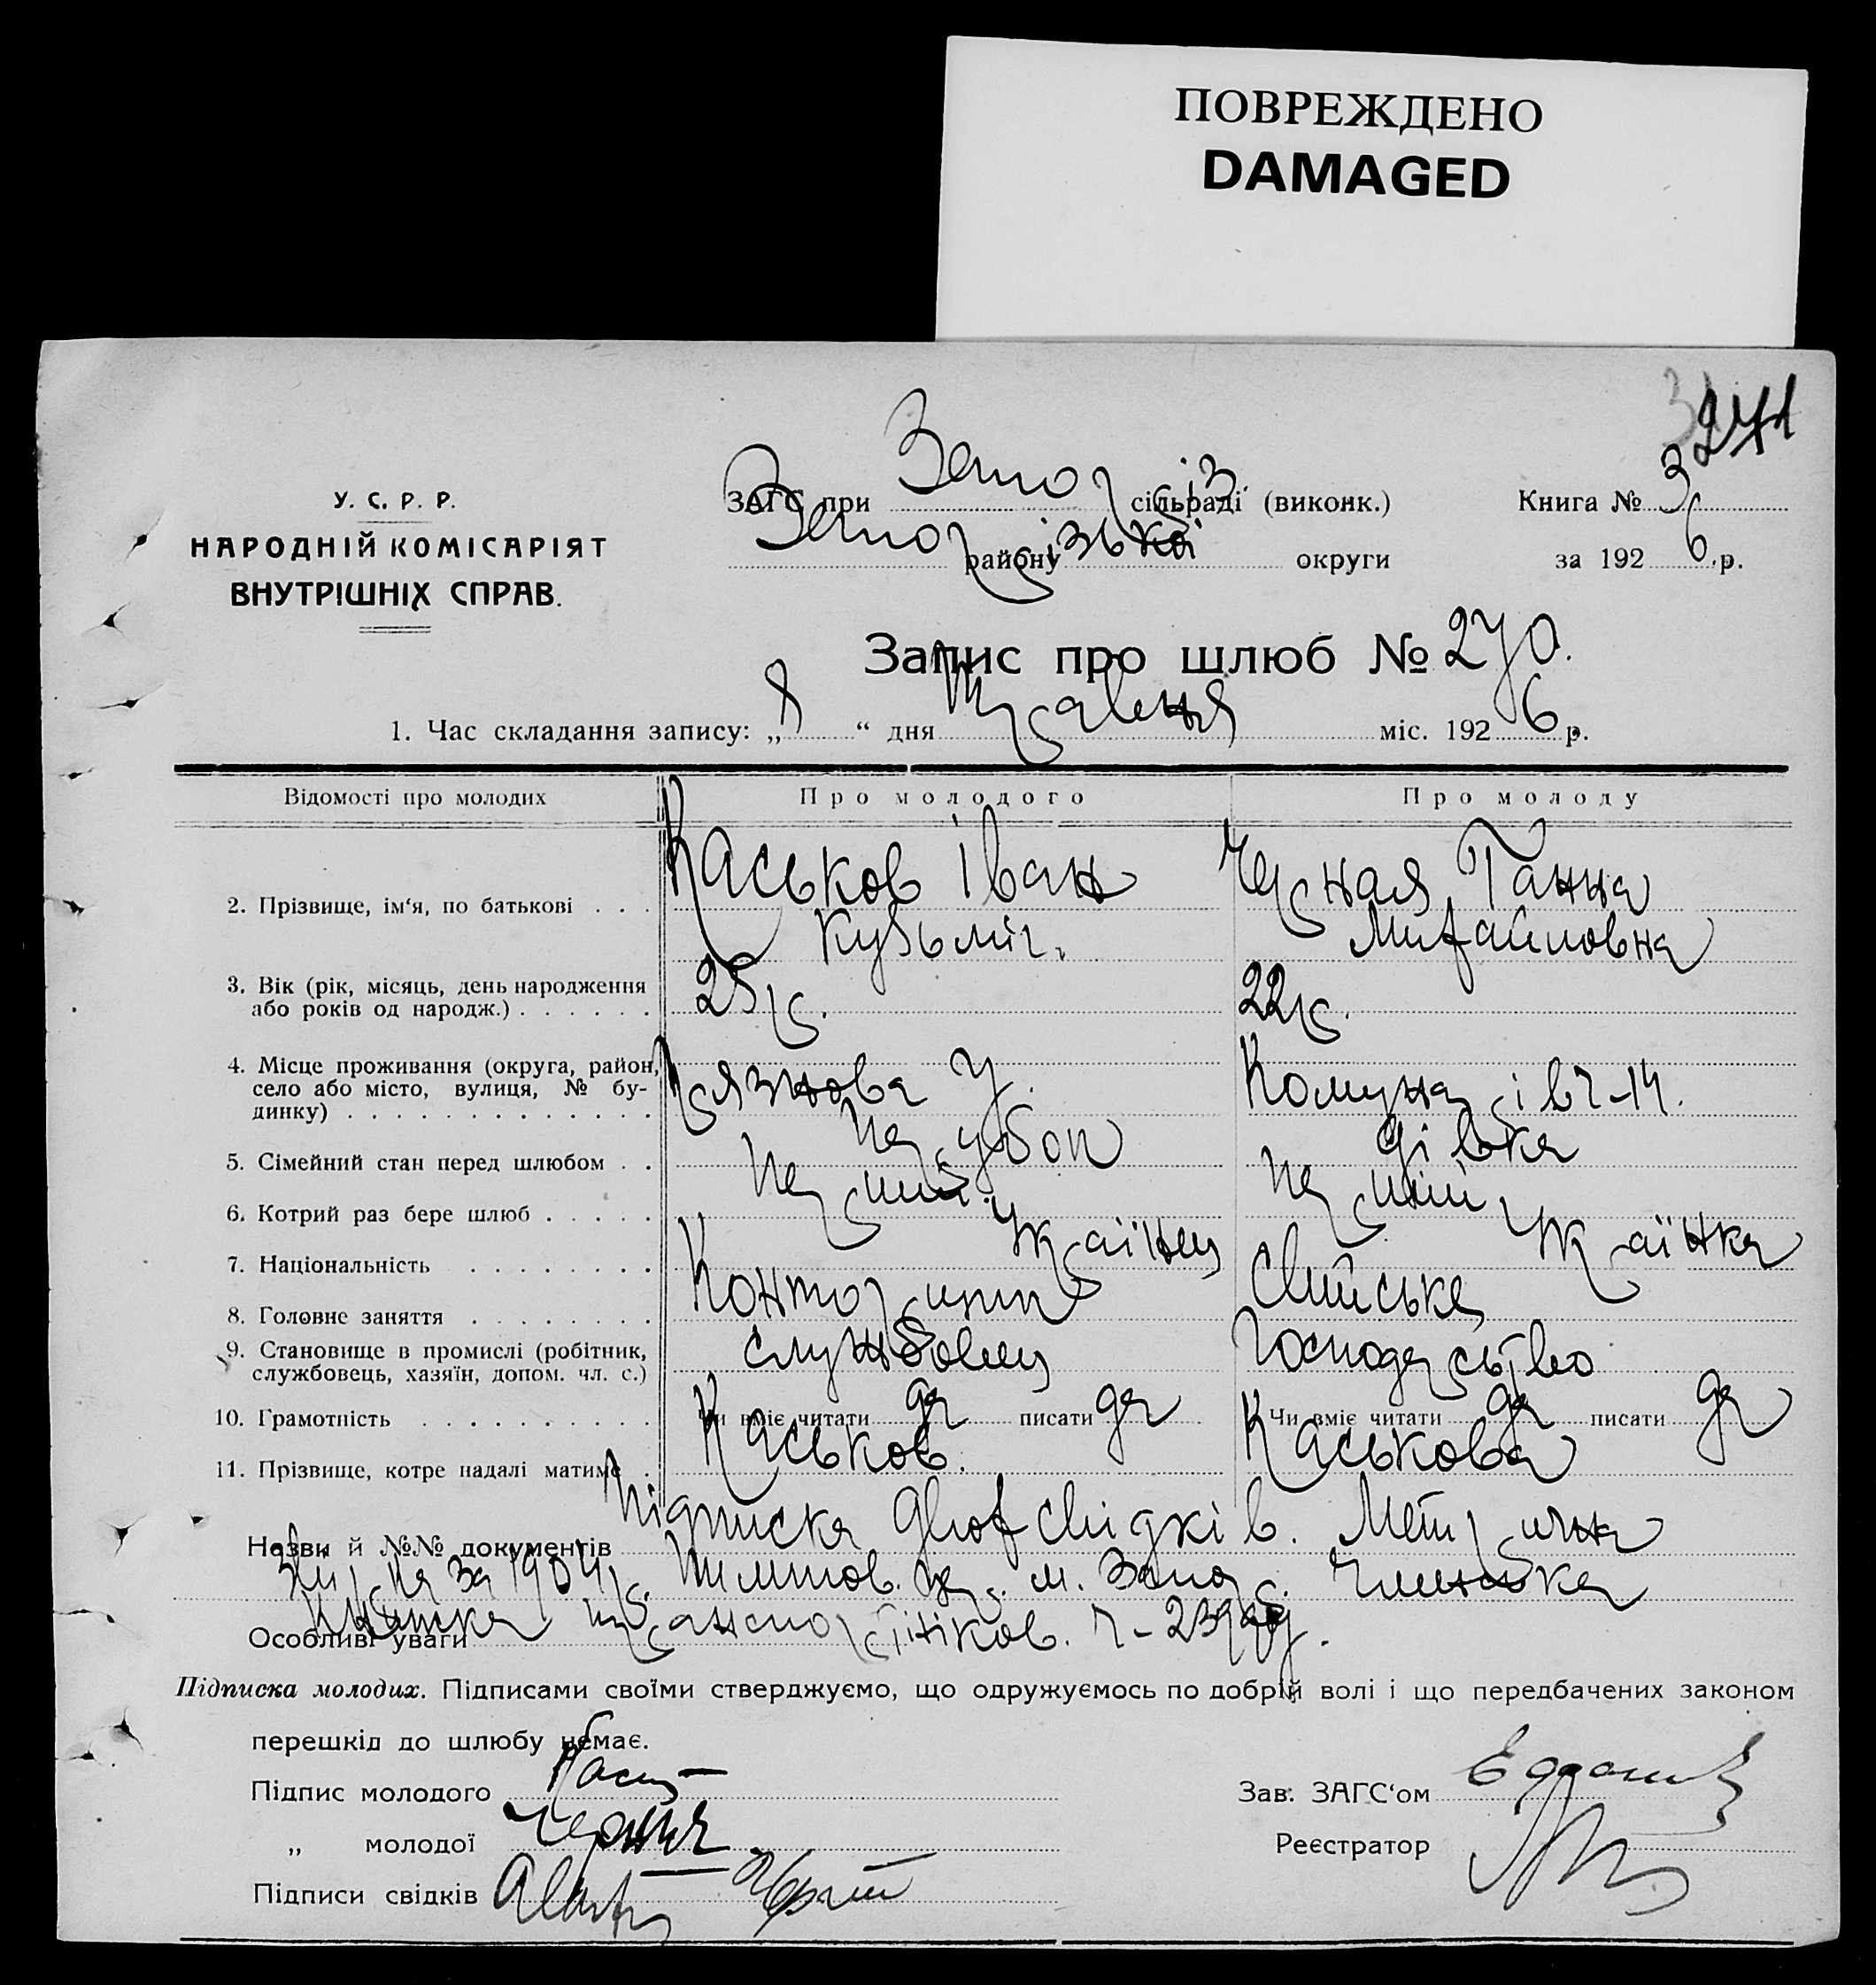 ПОВРЕЖДЕНО
DAMAGED
271
У. С. Р. Р.
НАРОДНІЙ КОМІСАРІЯТ
ВНУТРІШНІХ СПРАВ.
ЗАГС при Запоріз. сільраді (виконк.) Книга № 3
Запорізької району округи за 1926 р.
Запис про шлюб № 270.
1. Час складання запису: „8“ дня Травня міс. 1926 р.
Відомості про молодих Про молодого Про молоду
2. Прізвище, ім‘я, по батькові . . . Каськов Іван Черная Ганна
Кузьміч. Михайловна
3. Вік (рік, місяць, день народження
або років од народж.) . . . . . . 25 р. 22 р.
4. Місце проживання (округа, район,
село або місто, вулиця, № бу-
динку) . . . . . . . . . . . . . Грязнова 7. Комунарів 7-14.
5. Сімейний стан перед шлюбом . . Парубок дівка
6. Котрий раз бере шлюб . . . . . Перший Перший
7. Національність . . . . . . . . Українец Українка
8. Головне заняття . . . . . . . . Конторщик Сільське
9. Становище в промислі (робітник,
службовець, хазяїн, допом. чл. с.) службовец Господарство
10. Грамотність . . . . . . . . . . Чи вміє читати да писати да Чи вміє читати да писати да
11. Прізвище, котре надалі матиме . Каськов. Каськова
Назви й №№ документів Підписка двох свідків. Метрична
за 1904 р. м. Запор. Членська
Особливі уваги книжка транспортніков. ч-
Підписка молодих. Підписами своїми стверджуємо, що одружуємось по добрій волі і що передбачених законом
перешкід до шлюбу немає.
Підпис молодого Зав. ЗАГС‘ом
„ молодої Черная Реєстратор
Підписи свідків